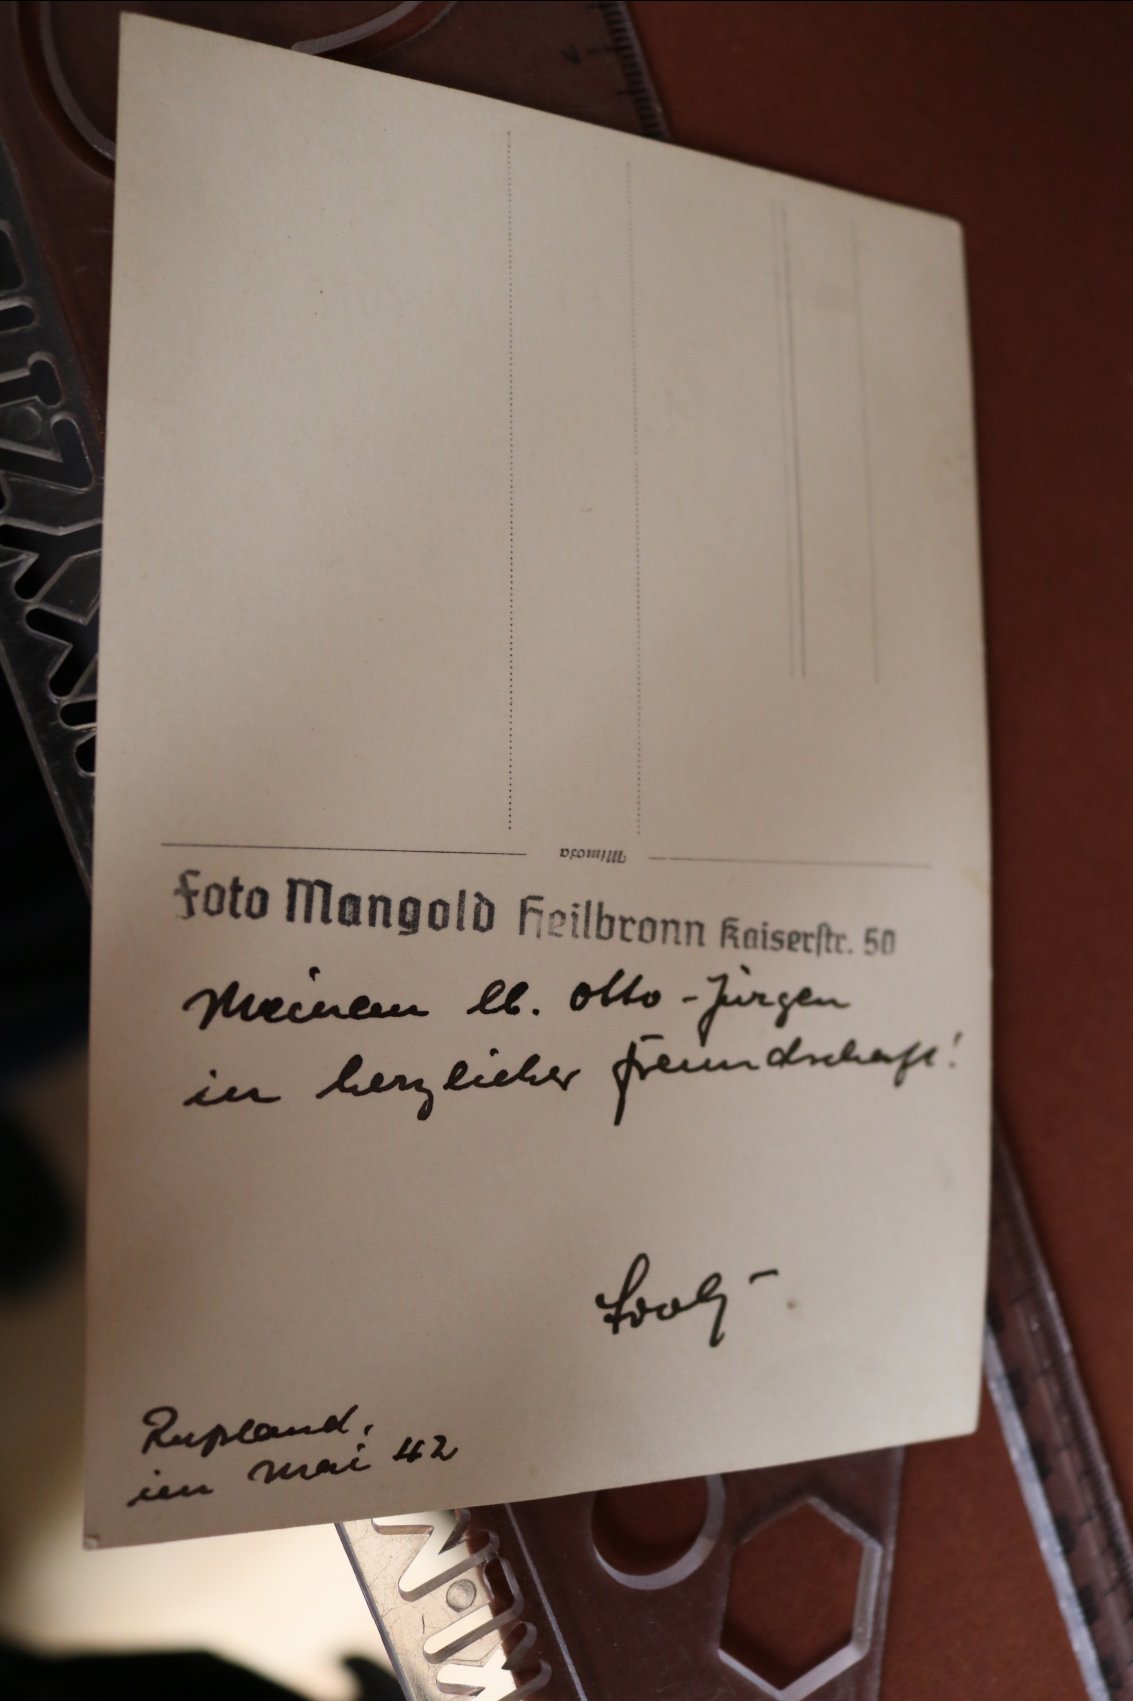 Mimosa
Foto Mangold Heilbronn Kaiserstr. 50
Meinem lb. Otto-Jürgen
in herzlicher Freundschaft!
Rußland,
im Mai 42